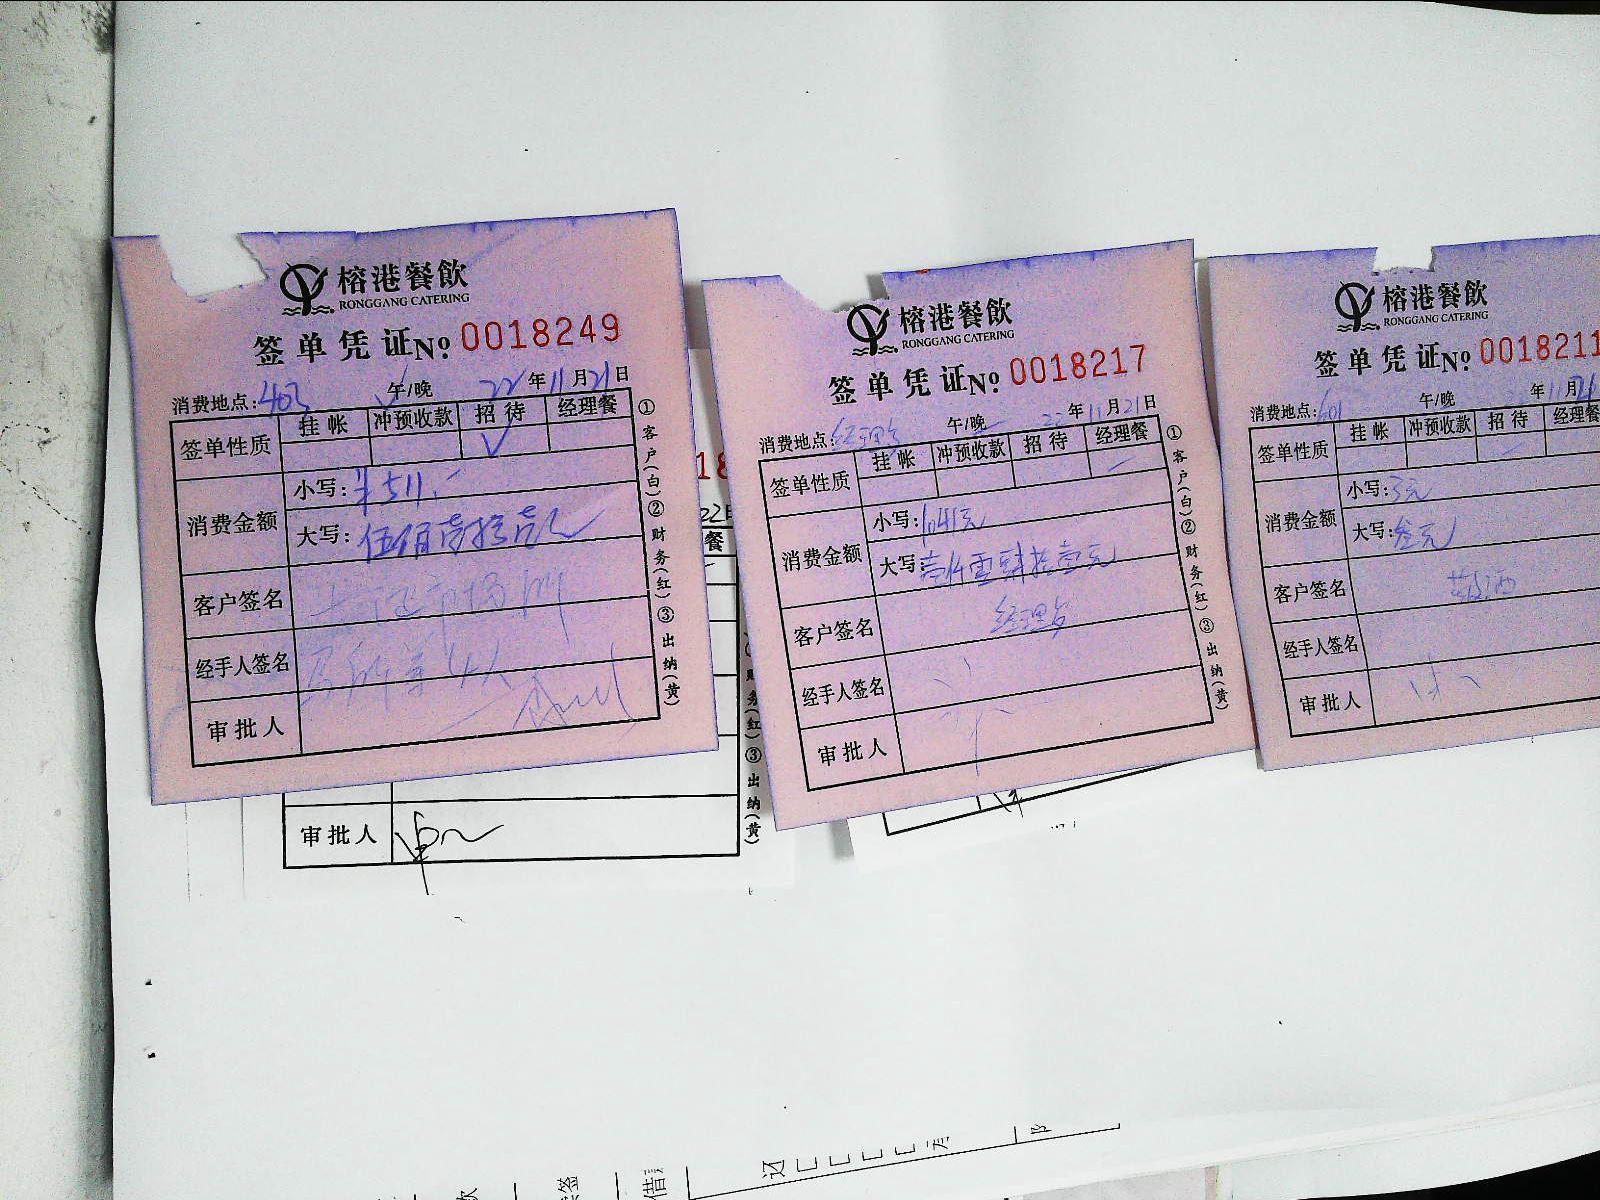 榕港餐飲
RONGGANG CATERING
签单凭证No. 0018249
消费地点:403 午/晚 22年11月21日
签单性质 挂帐 冲预收款 招待 经理餐
消费金额
小写:¥511.-
大写:伍佰壹拾壹元
客户签名
经手人签名
审批人
①客户(白)②财务(红)③出纳(黄)
榕港餐飲
RONGGANG CATERING
签单凭证No. 0018217
消费地点:经理 午/晚 22年11月21日
签单性质 挂帐 冲预收款 招待 经理餐
消费金额
小写:1041元
大写:壹仟零肆拾壹元
客户签名 经理
经手人签名
审批人
①客户(白)②财务(红)③出纳(黄)
榕港餐飲
RONGGANG CATERING
签单凭证No. 0018211
消费地点:601 午/晚 年11月21
签单性质 挂帐 冲预收款 招待 经理餐
消费金额
小写:3元
大写:叁元
客户签名
经手人签名
审批人
18
22日
餐
务(红)③出纳(黄)
审批人